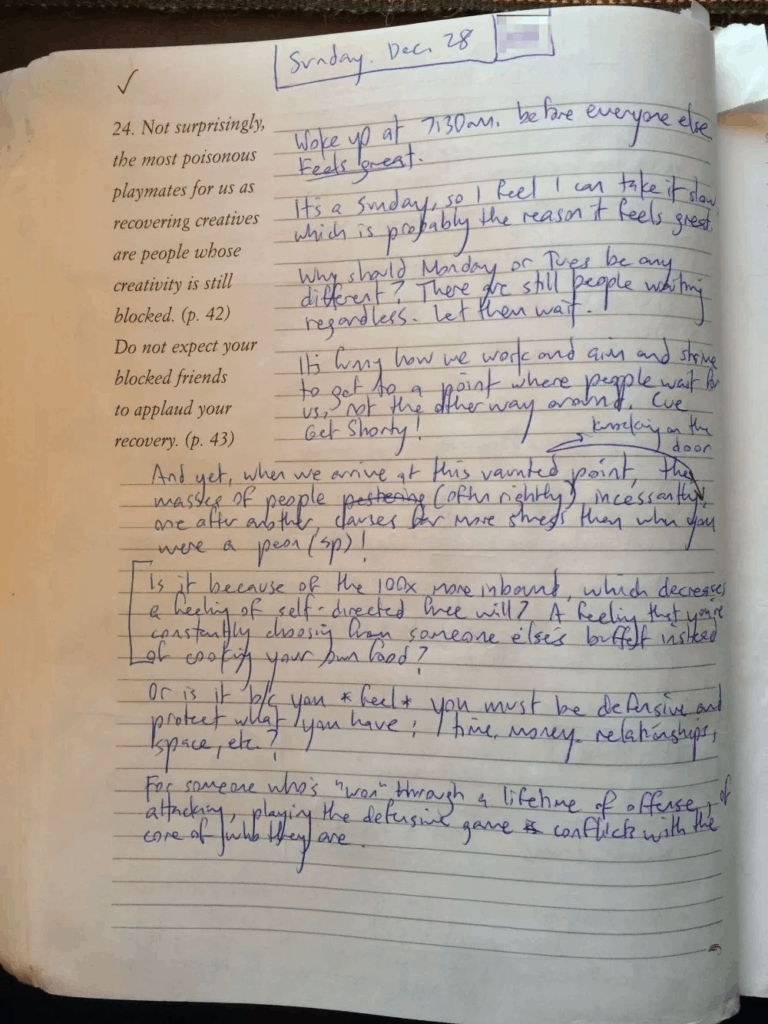 Sunday. Dec. 28
24. Not surprisingly,
the most poisonous
playmates for us as
recovering creatives
are people whose
creativity is still
blocked. (p. 42)
Do not expect your
blocked friends
to applaud your
recovery. (p. 43)
Woke up at 7:30am. before everyone else.
Feels great.
It's a Sunday, so I feel I can take it slow,
which is probably the reason it feels great.
Why should Monday or Tues be any
different? There are still people waiting
regardless. Let them wait.
It's funny how we work and aim and strive
to get to a point where people wait for
us, not the other way around. Cue
Get Shorty!
knocking on the
door
And yet, when we arrive at this vaunted point, the
masses of people pestering (often rightly) incessantly,
one after another, causes far more stress than when you
were a peon (sp)!
Is it because of the 100x more inbound, which decreases
a feeling of self-directed free will? A feeling that you're
constantly choosing from someone else's buffet instead
of cooking your own food?
Or is it b/c you *feel* you must be defensive and
protect what you have: time, money, relationships,
space, etc.?
For someone who's "won" through a lifetime of offense, of
attacking, playing the defensive game is conflicts with the
core of who they are.